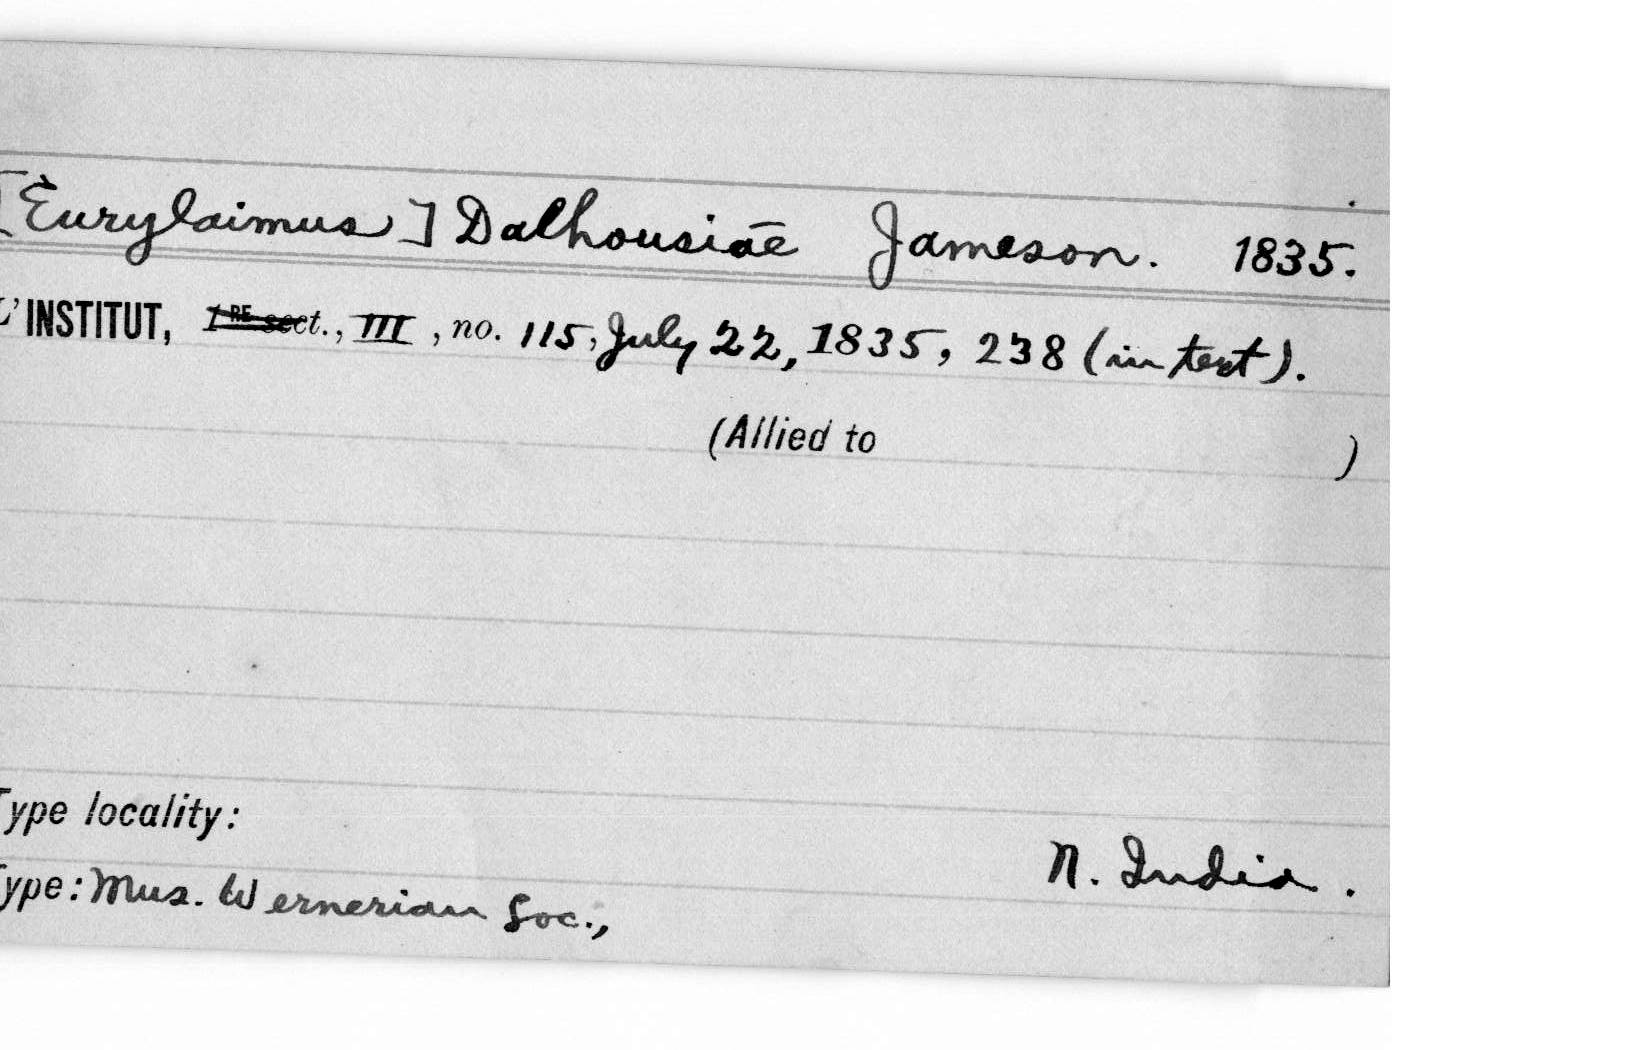 [Eurylaimus] Dalhousiae Jameson. 1835.
L'INSTITUT, 1RE sect., III, no. 115, July 22, 1835, 238 (in text).
(Allied to )
Type locality:
N. India.
Type: Mus. Wernerian Soc.,